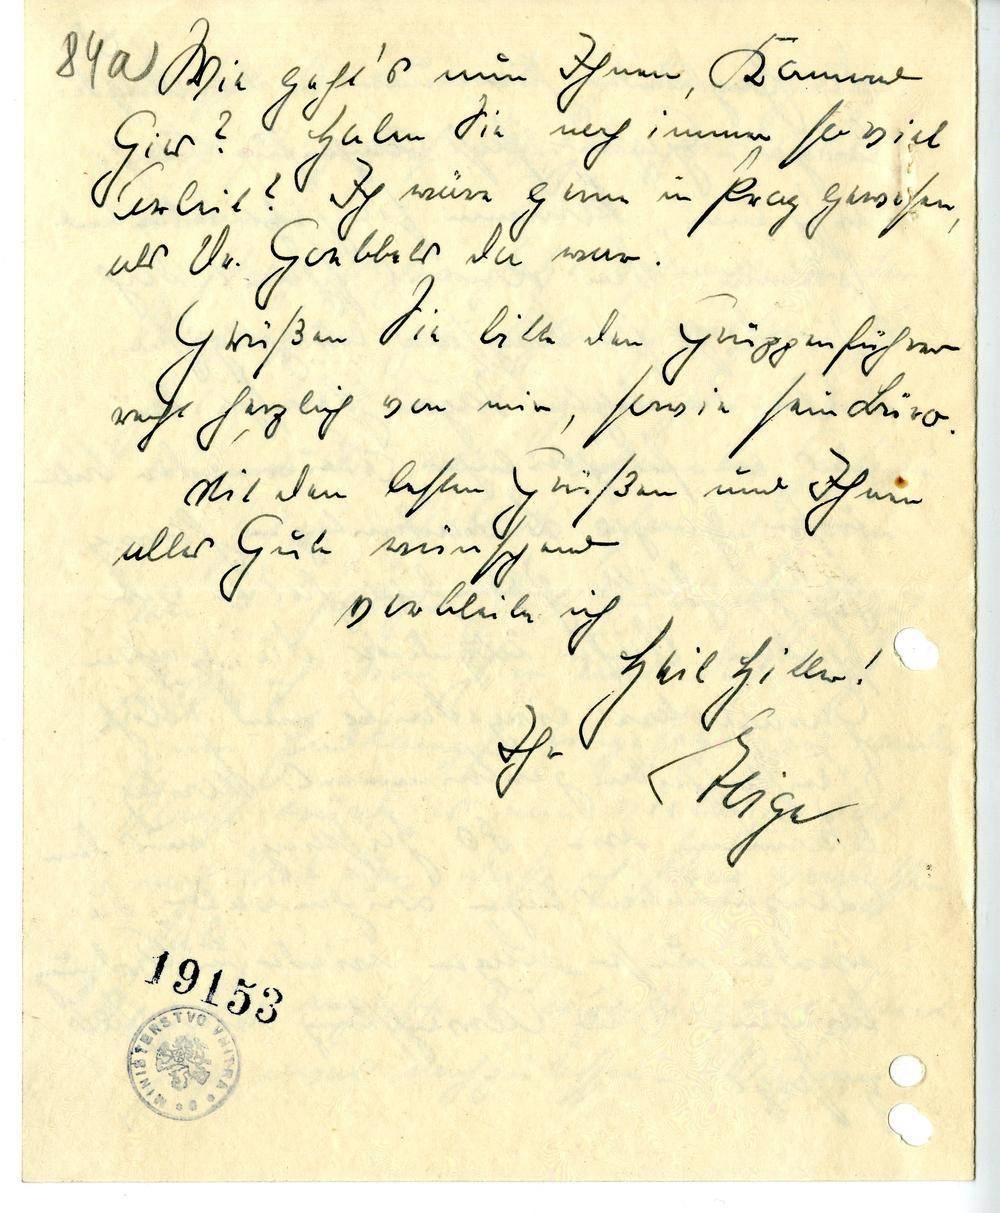 84a) Wie geht's nun Ihnen, Kamerad
Gies? Haben Sie noch immer so viel
Arbeit? Ich wäre gerne in Prag gewesen,
als Dr. Goebbels da war.
Grüßen Sie bitte den Gruppenführer
recht herzlich von mir, sowie sein Büro.
Mit den besten Grüßen und Ihnen
alles Gute wünschend
verbleibe ich
Heil Hitler!
Ihr
19153
MINISTERSTVO VNITRA